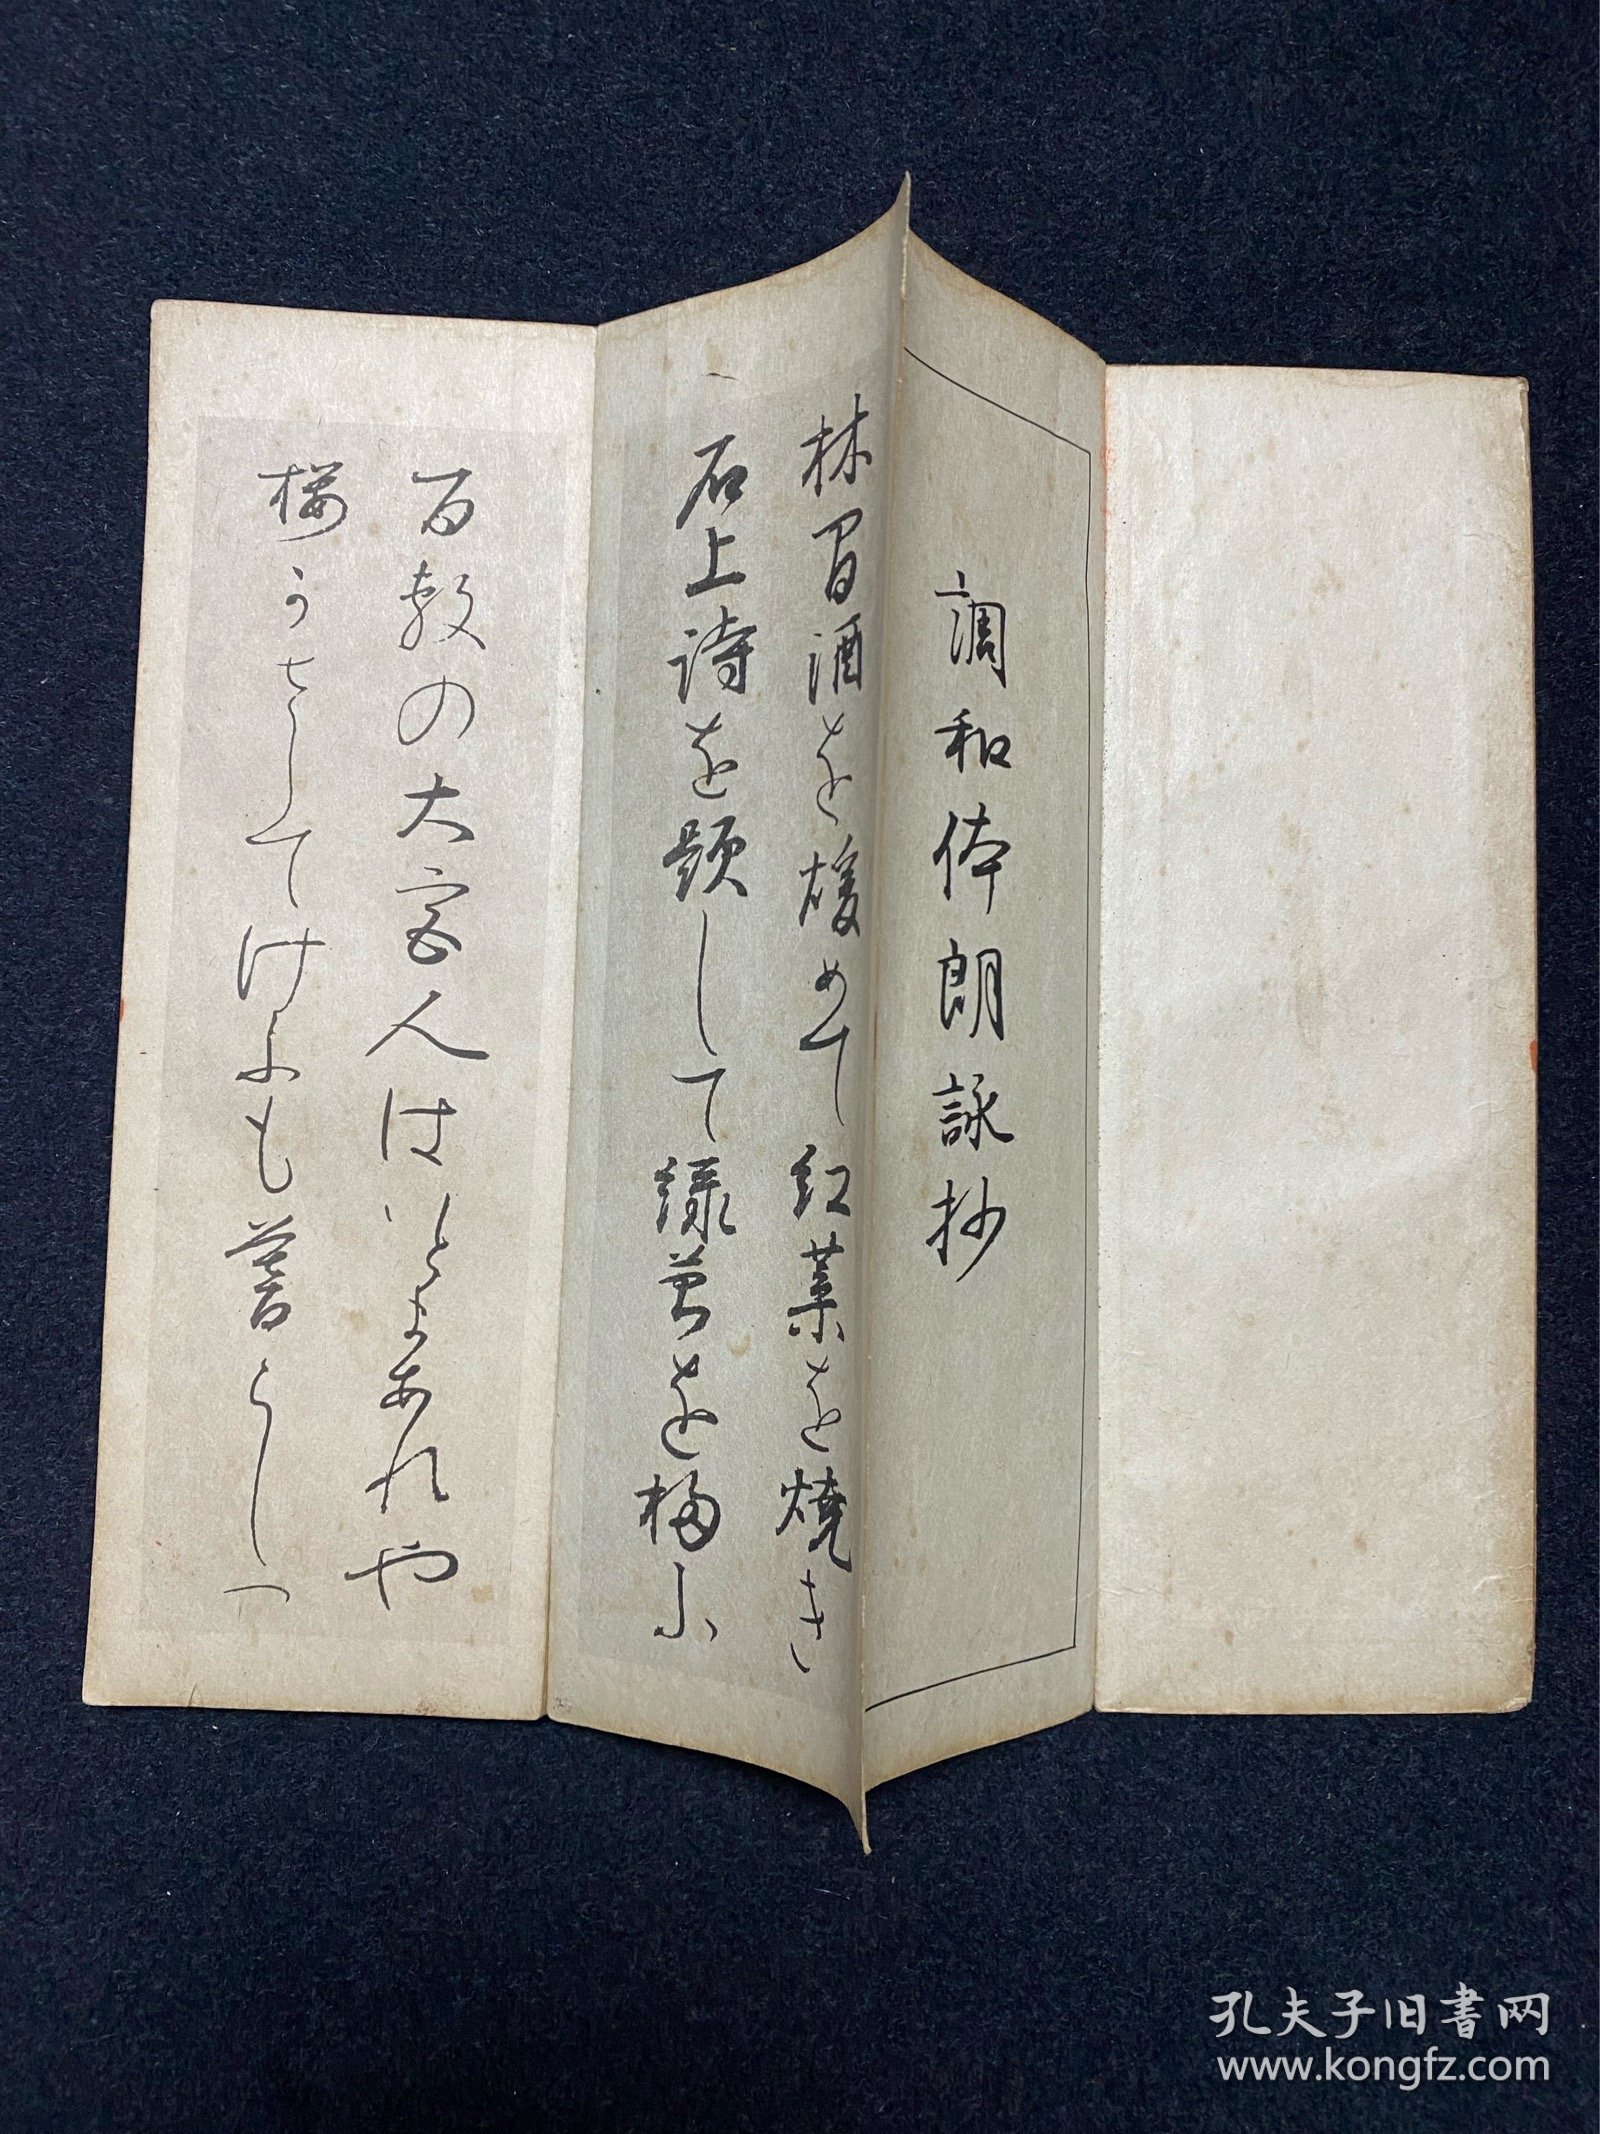 調和体朗詠抄
林間酒を煖めて紅葉を焼き
石上詩を題して緑苔を掃ふ
百敷の大宮人はいとまあれや
桜かざしてけふも暮らしつ
孔夫子旧書网
www.kongfz.com